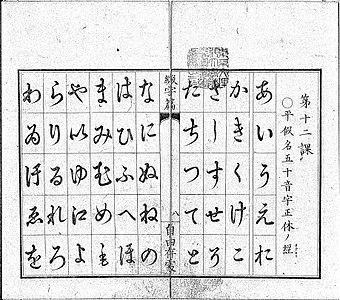 第十二課
〇平假名五十音字正体ノ經
あいうえお
かきくけこ
さしすせそ
たちつてと
綴字篇
八
なにぬねの
はひふへほ
まみむめも
や以ゆ江よ
らりるれろ
わゐ汙ゑを